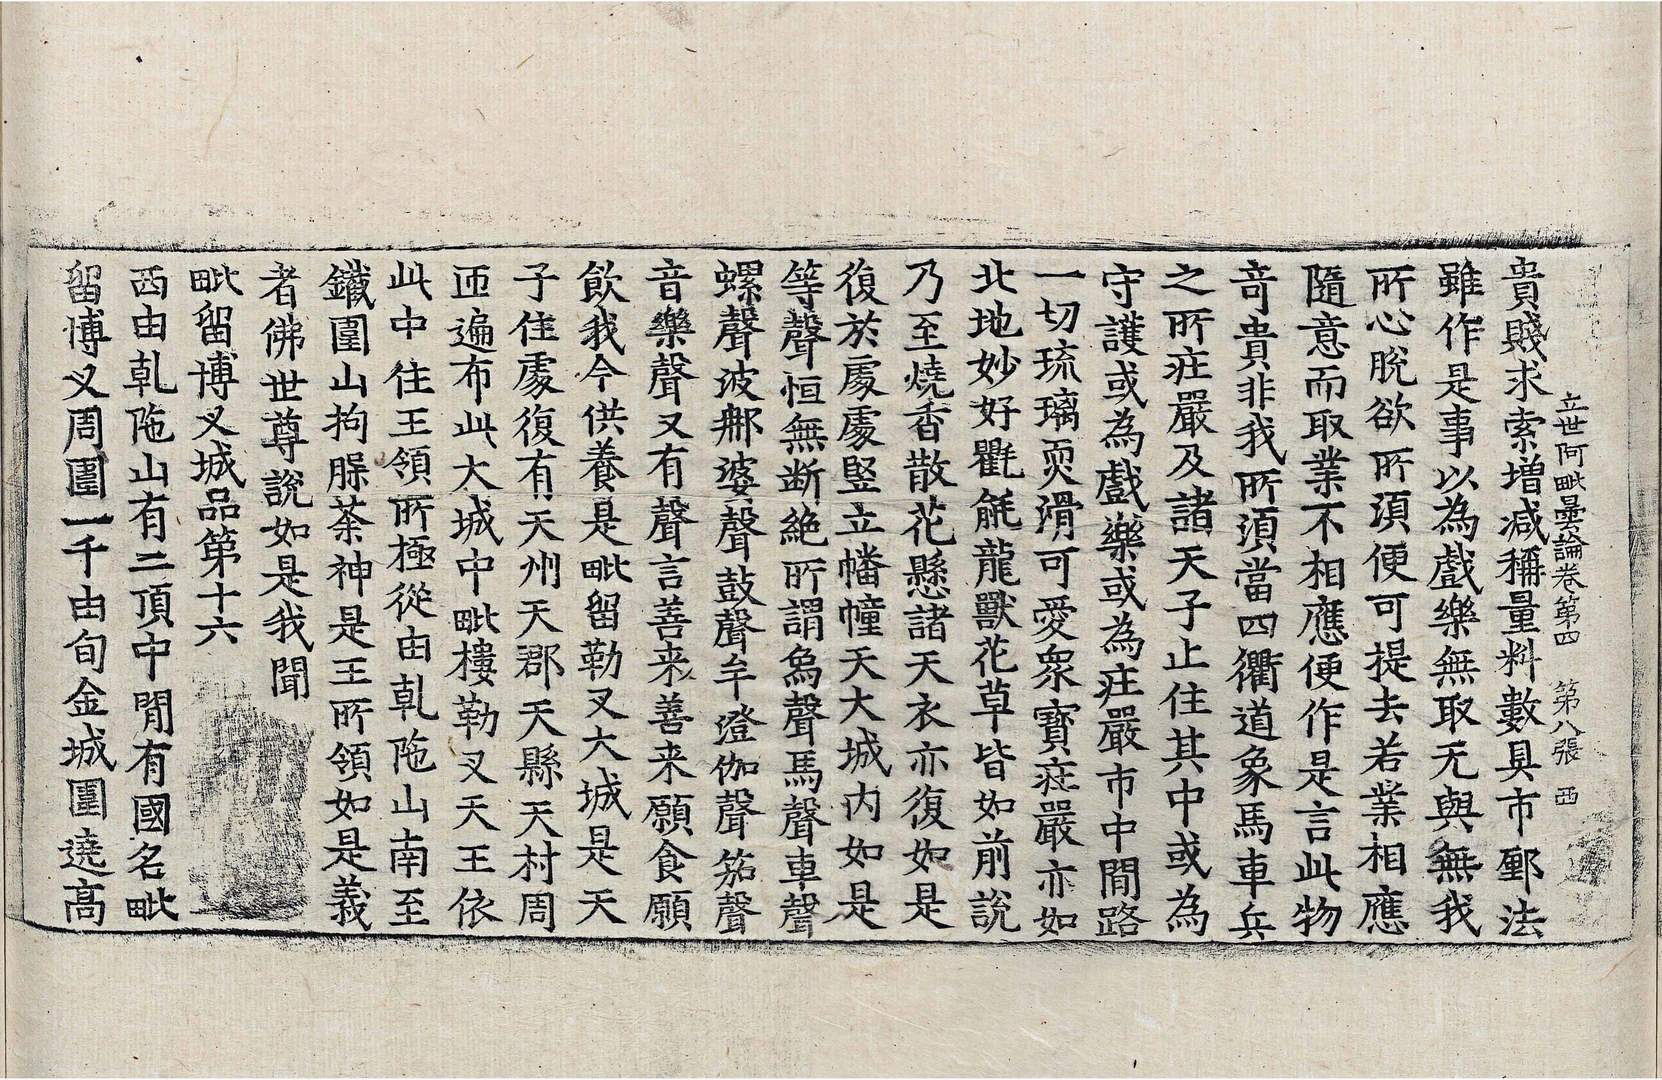 立世阿毗曇論卷第四　第八張　西
貴賤求索增減稱量料數具市郵法
雖作是事以為戲樂無取无與無我
所心脫欲所湏便可提去若業相應
隨意而取業不相應便作是言此物
竒貴非我所湏當四衢道象馬車兵
之所莊嚴及諸天子止住其中或為
守護或為戲樂或為莊嚴市中間路
一切琉璃耎滑可愛衆寶莊嚴亦如
北地妙好氍毹龍獸花草皆如前說
乃至燒香散花懸諸天衣亦復如是
復於處處竪立幡幢天大城内如是
等聲恒無断絕所謂象聲馬聲車聲
螺聲波那婆聲鼓聲牟澄伽聲笳聲
音樂聲又有聲言善来善来願食願
飲我今供養是毗留勒叉大城是天
子住處復有天州天郡天縣天村周
匝遍布此大城中毗樓勒叉天王依
此中住王領所極從由乹陁山南至
鐵圍山拘脲荼神是王所領如是義
者佛世尊說如是我聞
毗留博叉城品第十六
西由乹陁山有二頂中間有國名毗
留博叉周圍一千由旬金城圍遶高